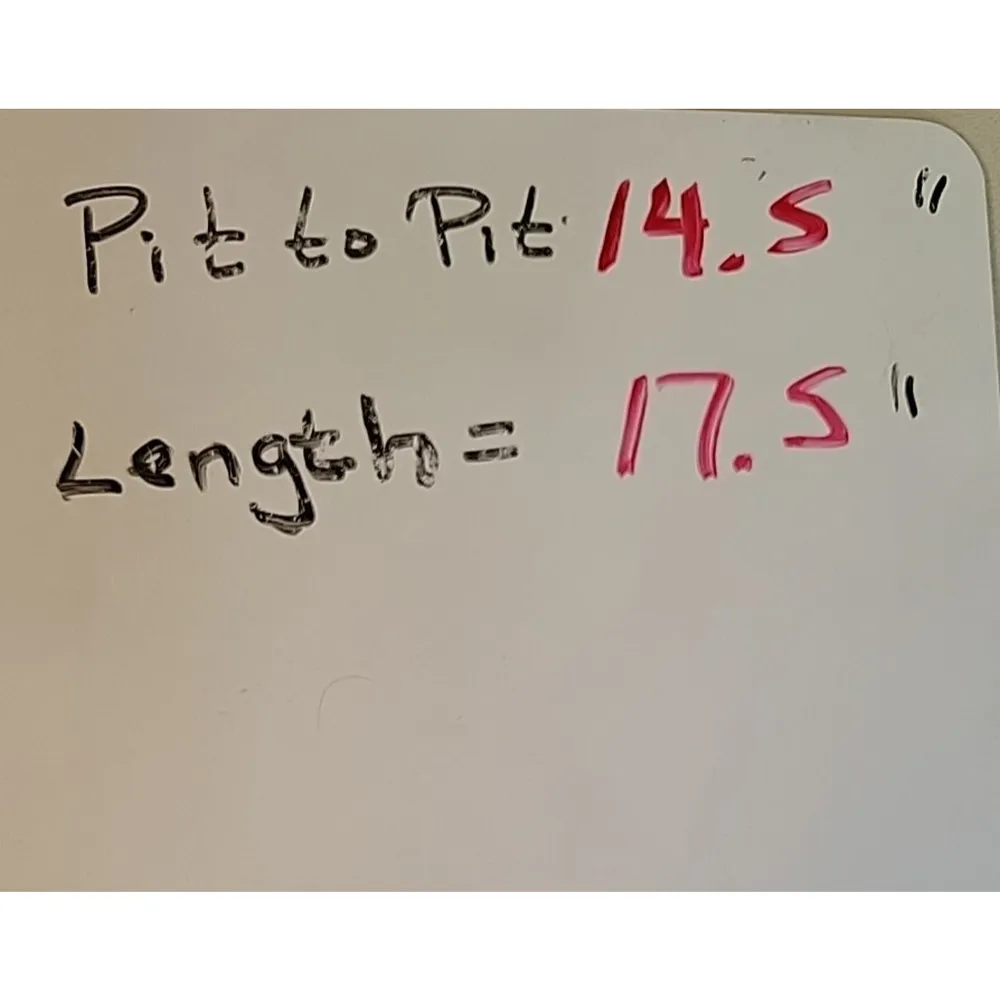 Pit to Pit 14.5 "
Length = 17.5 "